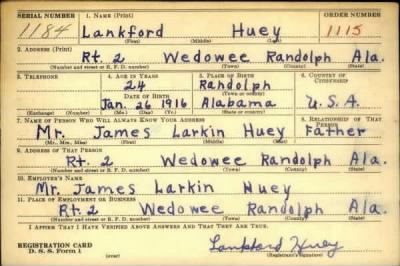 SERIAL NUMBER 1. NAME (Print) ORDER NUMBER
1184 Lankford Huey 1115
(First) (Middle) (Last)
2. ADDRESS (Print)
Rt. 2 Wedowee Randolph Ala.
(Number and street or R. F. D. number) (Town) (County) (State)
3. TELEPHONE 4. AGE IN YEARS 5. PLACE OF BIRTH 6. COUNTRY OF CITIZENSHIP
24 Randolph
DATE OF BIRTH (Town or county)
Jan. 26 1916 Alabama U.S.A.
(Exchange) (Number) (Mo.) (Day) (Yr.) (State or country)
7. NAME OF PERSON WHO WILL ALWAYS KNOW YOUR ADDRESS 8. RELATIONSHIP OF THAT PERSON
Mr. James Larkin Huey Father
(Mr., Mrs., Miss) (First) (Middle) (Last)
9. ADDRESS OF THAT PERSON
Rt. 2 Wedowee Randolph Ala.
(Number and street or R. F. D. number) (Town) (County) (State)
10. EMPLOYER'S NAME
Mr. James Larkin Huey
11. PLACE OF EMPLOYMENT OR BUSINESS
Rt. 2 Wedowee Randolph Ala.
(Number and street or R. F. D. number) (Town) (County) (State)
I AFFIRM THAT I HAVE VERIFIED ABOVE ANSWERS AND THAT THEY ARE TRUE.
REGISTRATION CARD
D. S. S. Form 1 Lankford Huey
(over) (Registrant's signature)